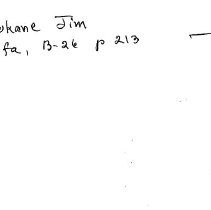 okane Jim
fa, B-26 p 213